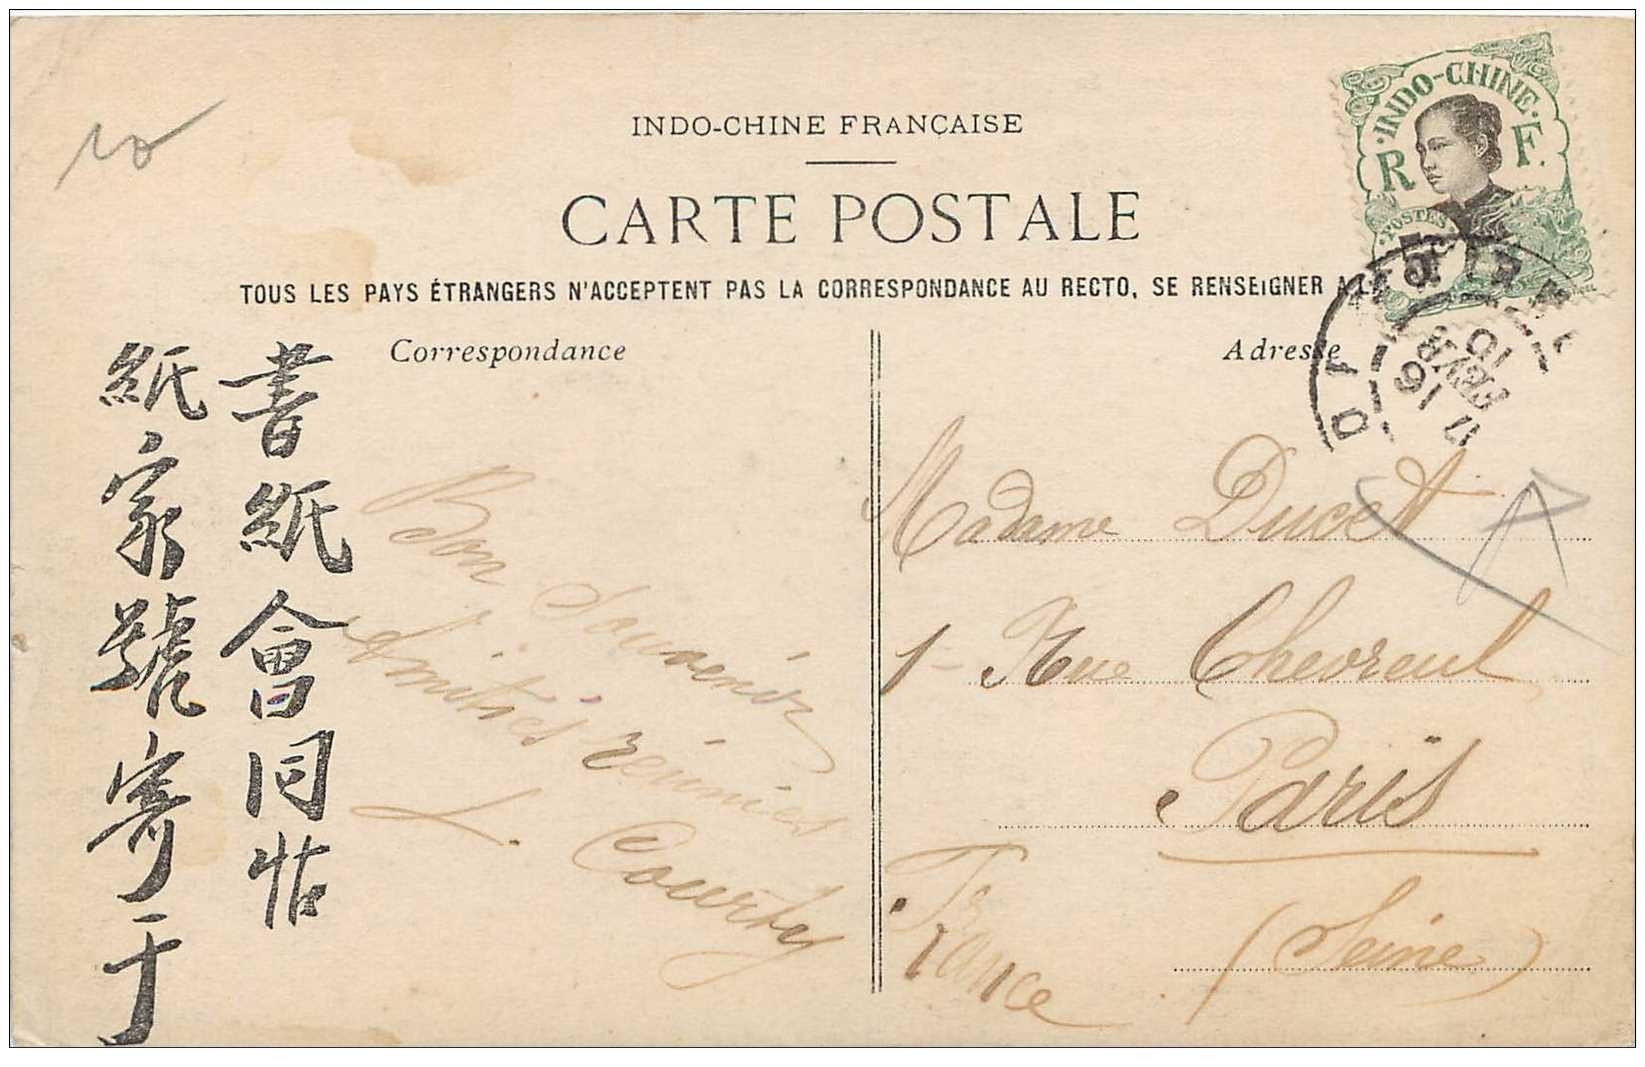 10
INDO-CHINE FRANÇAISE
CARTE POSTALE
TOUS LES PAYS ÉTRANGERS N'ACCEPTENT PAS LA CORRESPONDANCE AU RECTO, SE RENSEIGNER A L
INDO-CHINE
R F.
POSTES
17
16
FEVR
10
Correspondance
Adresse
書紙會同帖
紙家號寄于
Bon Souvenir
Amitiés réunies
L. Courtey
Madame Ducet
1 - Rue Chevreul
Paris
(Seine)
France